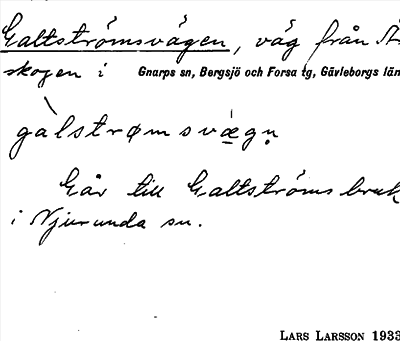 Galtströmsvägen, väg från
skogen i Gnarps sn, Bergsjö och Forsa tg, Gävleborgs län
gàlstrømsvæ̀gn̥
Går till Galtströms bruk
i Njurunda sn.
LARS LARSSON 1933